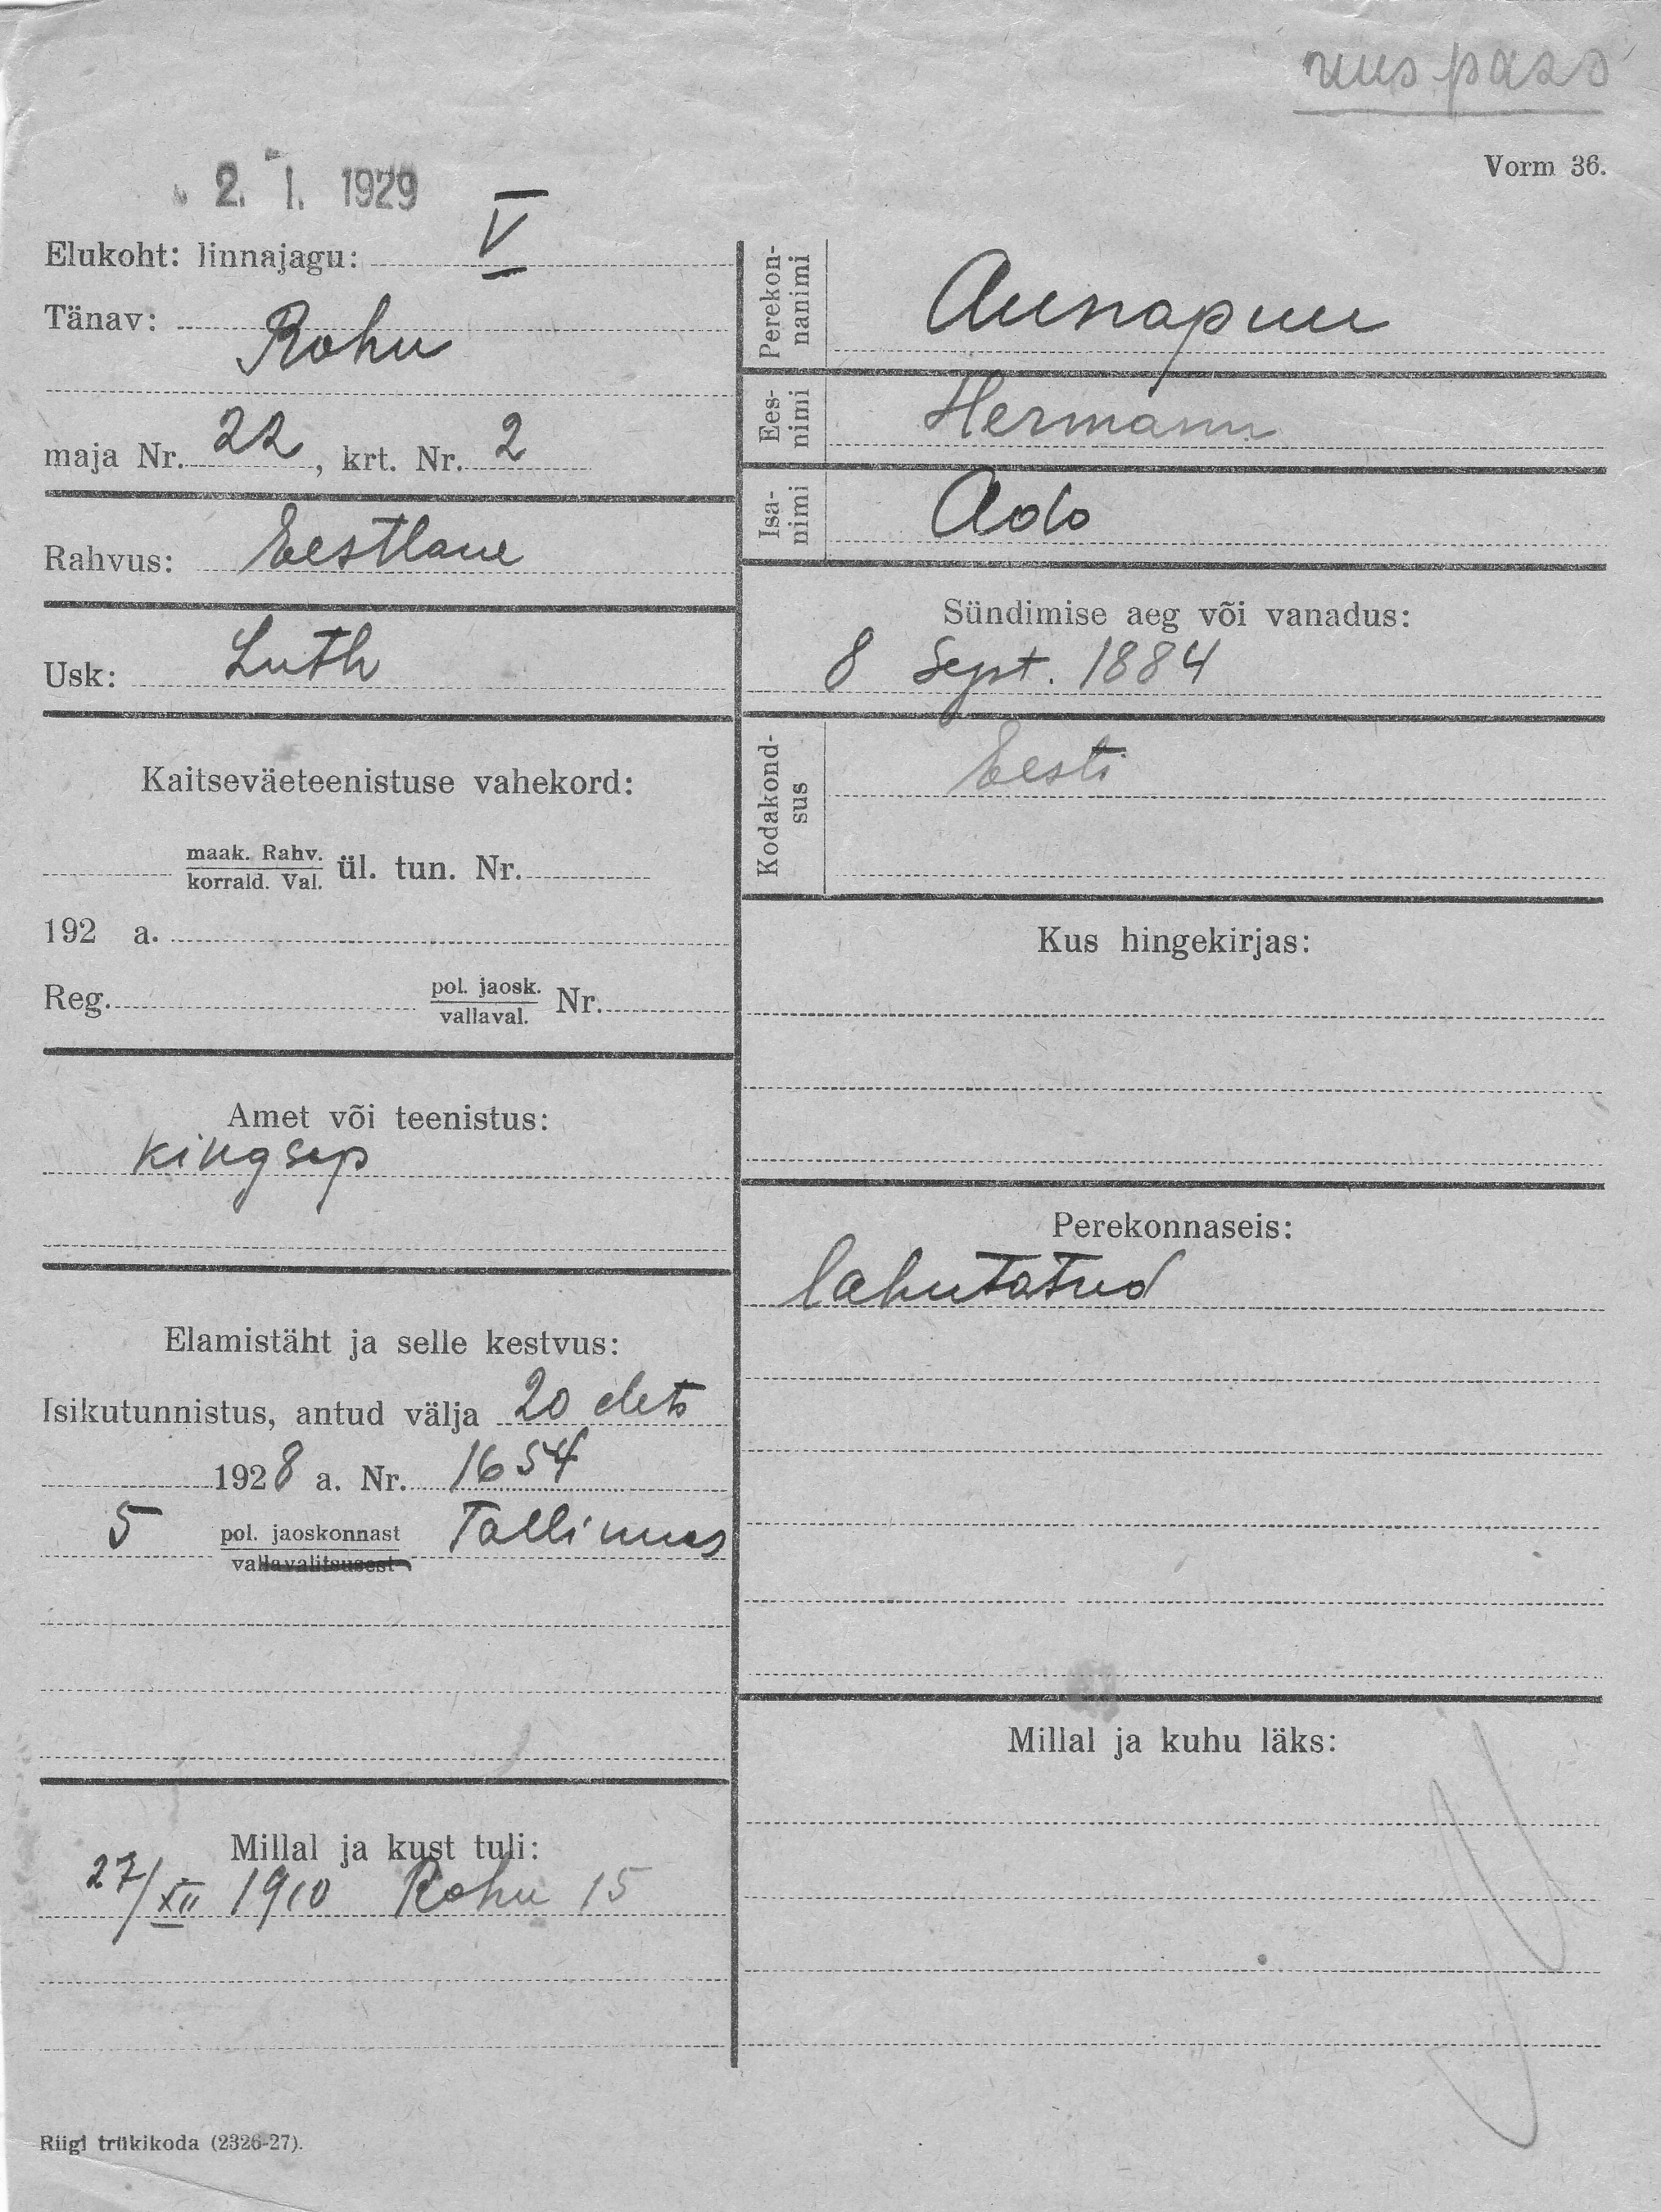 uus pass
Vorm 36.
2. I. 1929
Elukoht: linnajagu: V
Tänav: Rohu
maja Nr. 22, krt. Nr. 2
Rahvus: Eestlane
Usk: Luth
Kaitseväeteenistuse vahekord:
maak. Rahv.
korrald. Val. ül. tun. Nr.
192 a.
Reg. pol. jaosk. Nr.
vallaval.
Amet või teenistus:
Kingsep
Elamistäht ja selle kestvus:
Isikutunnistus, antud välja 20 dets
1928 a. Nr. 1654
5 pol. jaoskonnast Tallinnas
vallavalitsusest
Millal ja kust tuli:
27/XII 1910 Rohu 15
Riigi trükikoda (2326-27).
Perekon-
nanimi
Aunapuu
Ees-
nimi
Hermann
Isa-
nimi
Ado
Sündimise aeg või vanadus:
8 Sept. 1884
Kodakond-
sus
Eesti
Kus hingekirjas:
Perekonnaseis:
lahutatud
Millal ja kuhu läks: